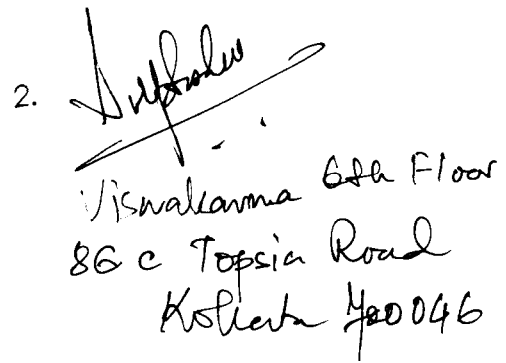 2.
Viswakarma 6th Floor
86 C Topsia Road
Kolkata 700046